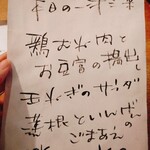 本日の一汁三菜
鶏むね肉と
お豆腐の揚出し
玉ねぎのサラダ
蓮根といんげんの
ごまあえ